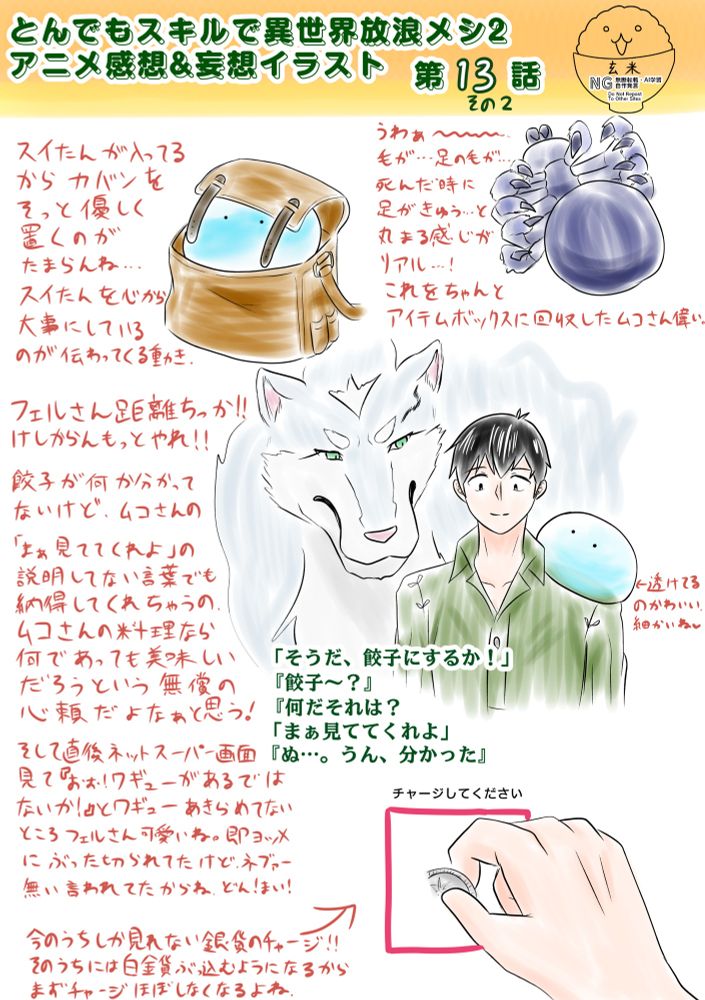 とんでもスキルで異世界放浪メシ2
アニメ感想&妄想イラスト 第13話
その2
玄米
NG 無断転載・AI学習
自作発言
Do Not Repost
To Other Sites
スイたんが入ってる
から カバンを
そっと優しく
置くのが
たまらんね…
スイたんを心から
大事にしている
のが伝わってくる動き.
うわぁ〜〜〜…
毛が…足の毛が…
死んだ時に
足がきゅぅ…と
丸まる感じが
リアル…!
これをちゃんと
アイテムボックスに回収したムコさん偉い.
フェルさん距離ちっか!!
けしからんもっとやれ!!
餃子が何か分かって
ないけど、ムコさんの
「まぁ見ててくれよ」の
説明してない言葉でも
納得してくれちゃうの、
ムコさんの料理なら
何であっても美味しい
だろうという無償の
心頼だよなぁと思う!
←透けてる
のかわいい.
細かいね
「そうだ、餃子にするか!」
『餃子〜?』
『何だそれは?
「まぁ見ててくれよ」
『ぬ…。うん、分かった』
そして直後ネットスーパー画面
見て『おぉ!ワギューがあるでは
ないか!』とワギューあきらめてない
ところフェルさん可愛いね。即ヨッメ
にぶった切られてたけど、ネブァー
無い言われてたからね、どん!まい!
チャージしてください
今のうちしか見れない銀貨のチャージ!!
そのうちには白金貨ぶっ込むようになるから
まずチャージほぼしなくなるよね.